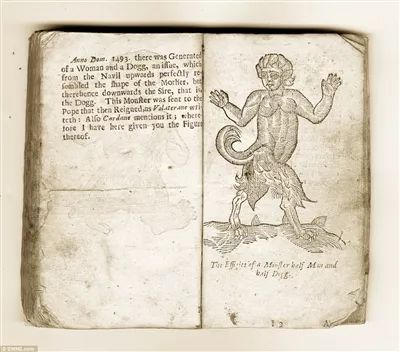 Anno Dom. 1493. there was Generated
of a Woman and a Dogg, an issue, which
from the Navil upwards perfectly re-
sembled the shape of the Mother, but
therehence downwards the Sire, that is
the Dogg. This Monster was sent to the
Pope that then Reigned, as Volaterane wri-
teth: Also Cardane mentions it; where-
fore I have here given you the Figure
thereof.
The Effigies of a Monster half Man and
half Dogg.
© SWNS.com